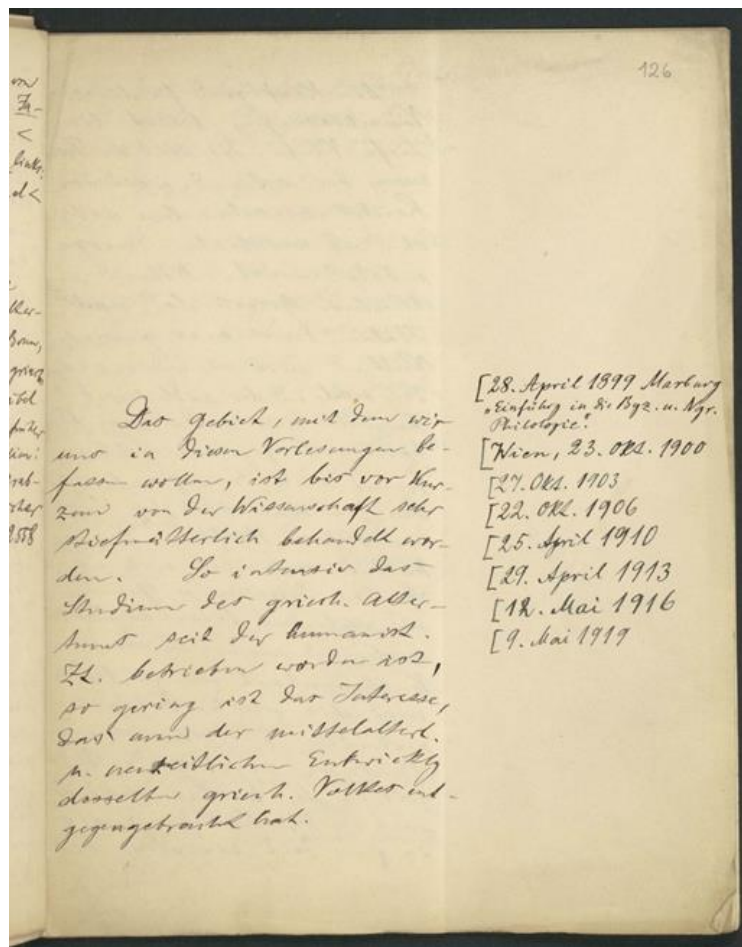 126
Das Gebiet, mit dem wir
uns in diesen Vorlesungen be-
fassen wollen, ist bis vor Kur-
zem von der Wissenschaft sehr
stiefmütterlich behandelt wor-
den. So intensiv das
Studium des griech. Alter-
tums seit der humanist.
Zt. betrieben worden ist,
so gering ist das Interesse,
das man der mittelalterl.
u. neuzeitlichen Entwicklg
desselben griech. Volkes ent-
gegengebracht hat.
[28. April 1899 Marburg
„Einführg in die Byz. u. Ngr.
Philologie“.
[Wien, 23. Okt. 1900
[27. Okt. 1903
[22. Okt. 1906
[25. April 1910
[29. April 1913
[12. Mai 1916
[9. Mai 1919